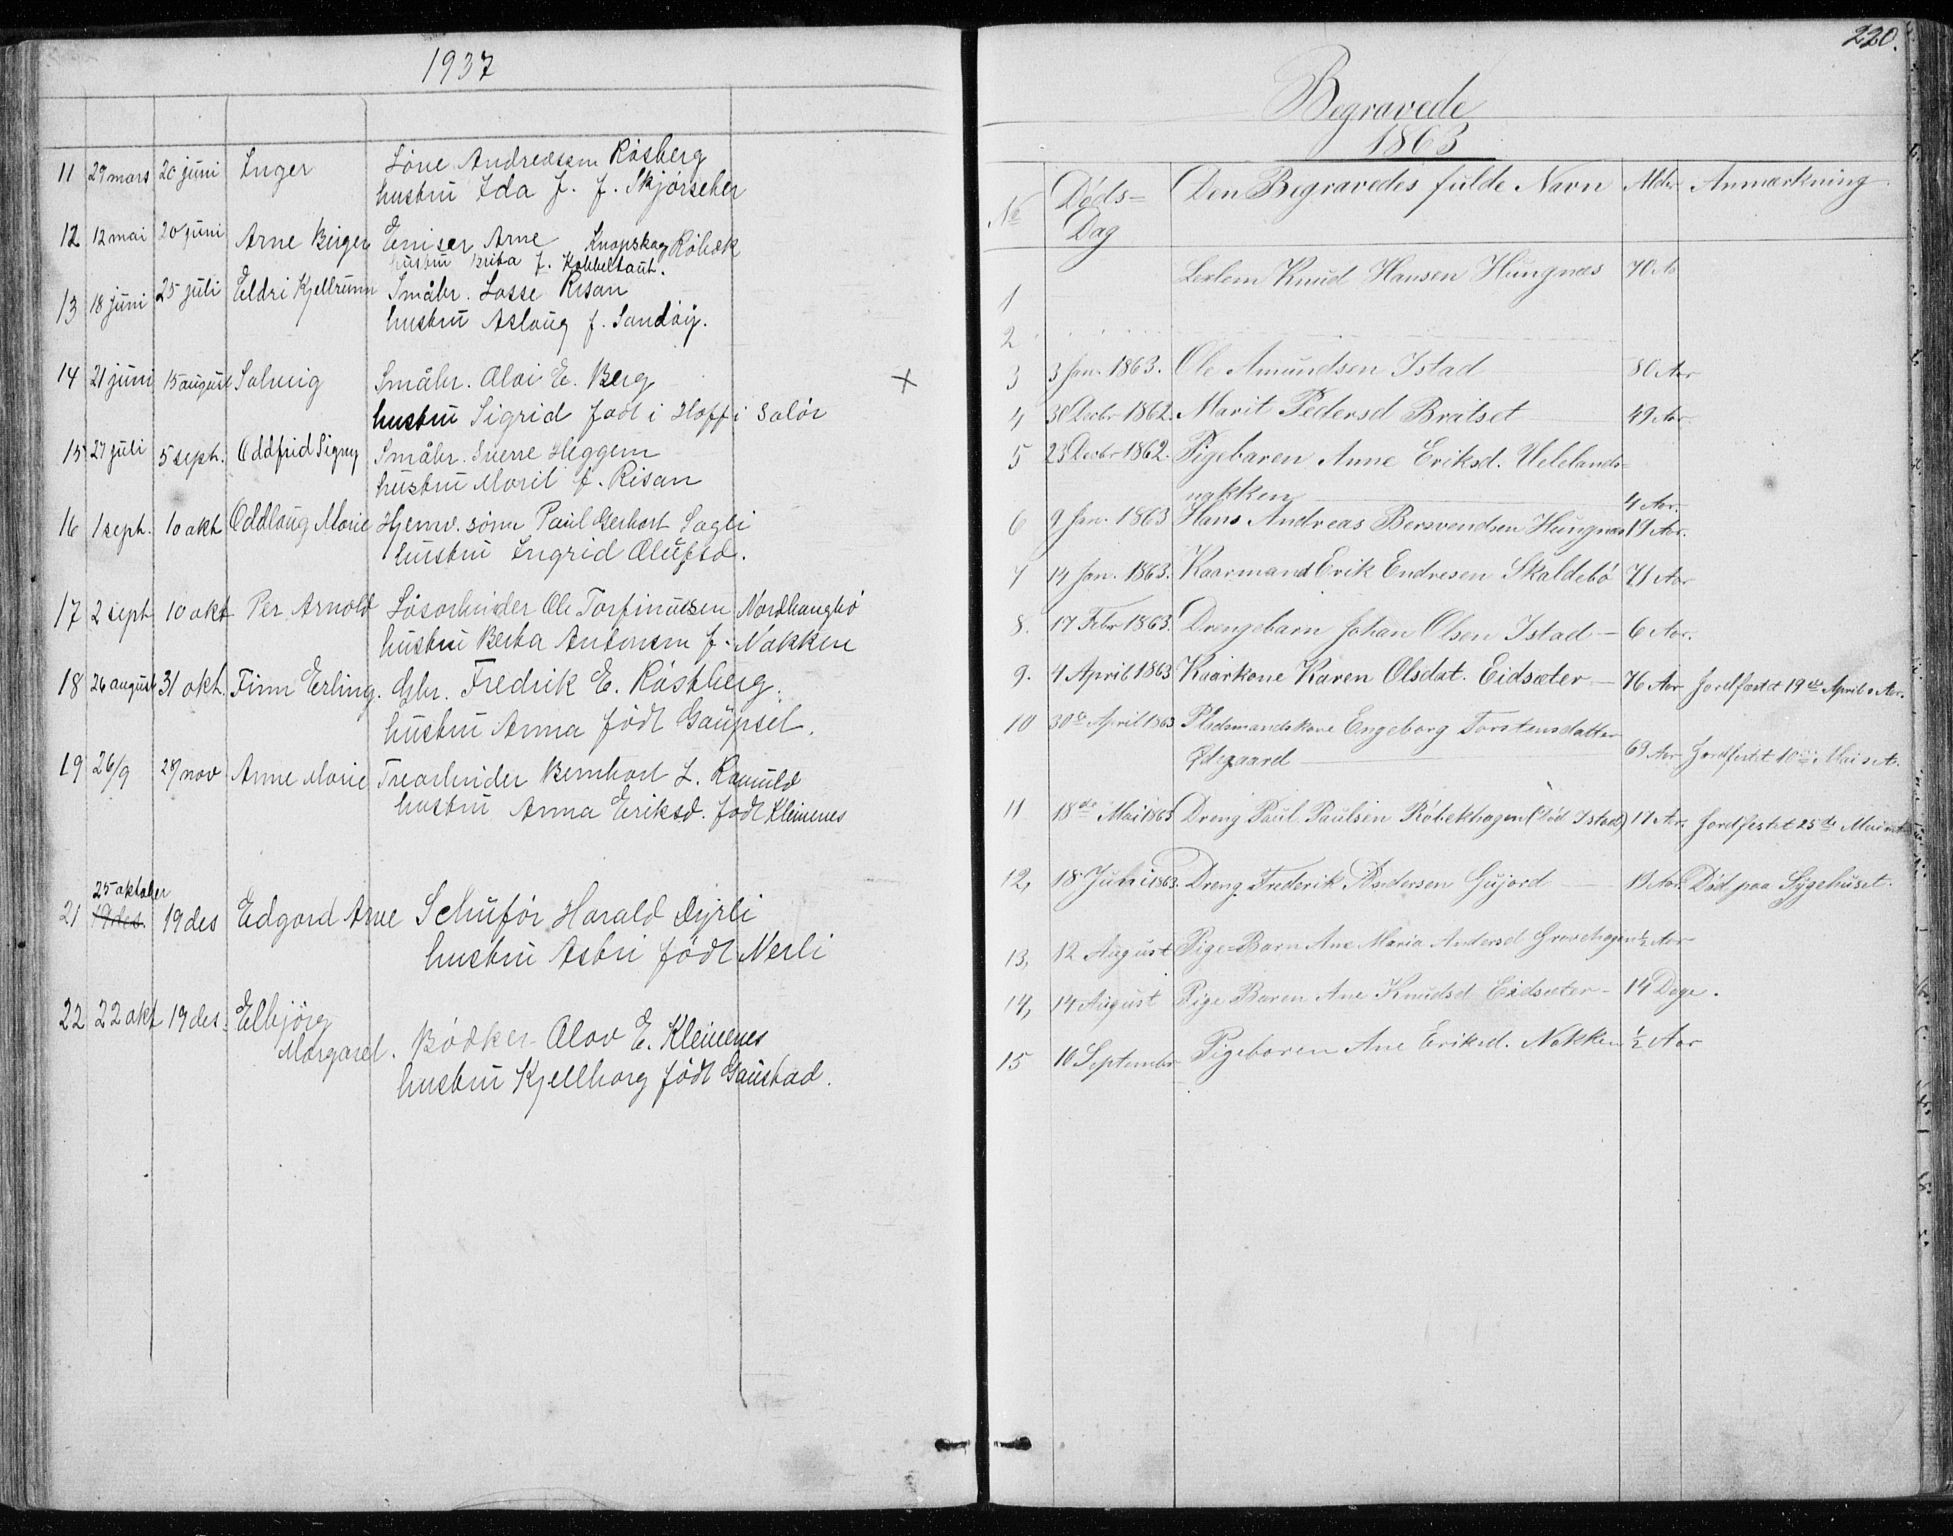 1937
11 29 mars 20 juni Inger Lòne Andreassen Røsberg
hustru Ida J. f. Skjørseter
12 12 mai 20 juni Arne Birger Arne Knopskog Røbæk
hustru Brita f. Kobbeltautt.
13 18 juni 25 juli Eldri Kjellrunn Småbr. Lasse Risan
hustru Aslaug f. Sandøy.
14 21 juni 15 august Solveig Småbr. Olai E. Berg
hustru Sigrid født i Hoff i Solør
15 27 juli 5 sept. Oddfrid Signy Småbr. Sverre Heggem
hustru Marit f. Risan
16 1 sept. 10 okt Oddlaug Marie Hjemv. sønn Paul Gerhart Sagli
hustru Ingrid Olufsd.
17 2 sept 10 okt Per Arnold Løsarbeider Ole Torfinnesen Nordhaugbø
hustru Berta Antonsen f. Nakken
18 26 august 31 okt. Finn Erling. Gbr. Fredrik E. Røshberg.
hustru Anna født Gaupset.
19 26/9 28/nov Anne Marie Trearbeider Bernhart L. Ramuld
hustru Anna Eriksd. født Kleivenes
25 oktober
21 19 des. 19 des Edgard Arne Schufør Harald Dyrli
hustru Astri født Nerli
22 22 okt 19 des. Elbjørg
Margaret. Bødker Olav E. Kleivenes
hustru Kjellborg født Gaustad.
220.
Begravede
1863
No Døds= Den Begravedes fulde Navn Alder Anmærkning
Dag
1 Leilem Knud Hansen Hungnæs 70 A
2
3 3 Jan. 1863. Ole Amundsen Istad 80 Aar
4 30 Decbr 1862. Marit Pedersd Bratset 49 Aar
5 23 Decbr 1862. Pigebaren Anne Eriksd. Uelelands=
nakken 4 Aar.
6 9 Jan. 1863 Hans Andreas Bersvendsen Hungnæs 19 Aar.
7 14 Jan. 1863. Kaarmand Erik Endresen Skaldebø 71 Aar
8. 17 Febr 1863. Drengebarn Johan Olsen Istad — 6 Aar.
9. 4 April 1863 Kaarkone Karen Olsdat. Eidsæter — 76 Aar Jordfæstet 19de April s. Aar.
10 30te April 1863 Pladsmandskone Engeborg Torstensdatter
Ødegaard 69 Aar Jordfestet 10de Mai s. A.
11 18de Mai 1863 Dreng Paul Paulsen Røbekhagen (Død Istad) 17 Aar. Jordfestet 25de Mai
12, 18 Juli 1863. Dreng Frederik Pedersen Gujord 13 Aar. Død paa Sygehuset.
13, 12 August Pige=Barn Ane Maria Andersd Grovehagen ½ Aar
14, 14 August Pige Baren Ane Knudsd Eidsæter — 14 Dage.
15 10 Septembr Pigebaren Ane Eriksd. Nakken ½ Aar